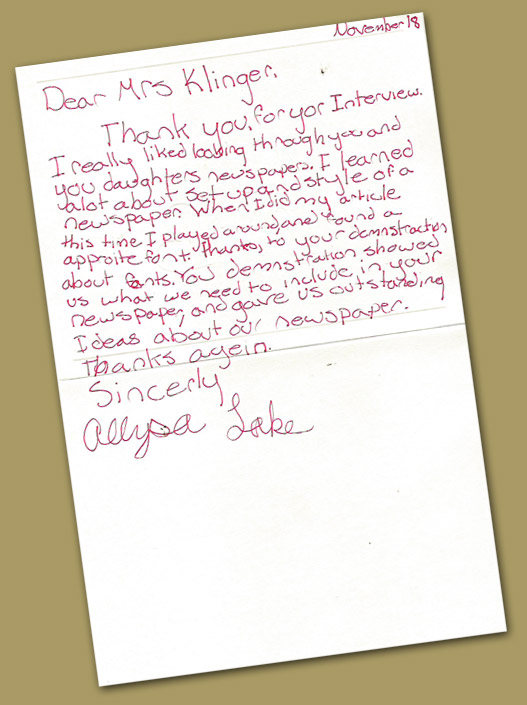 November 18
Dear Mrs Klinger,
Thank you, for yor Interview.
I really liked looking through you and
you daughters newspapers. I learned
alot about set up and style of a
newspaper. When I did my article
this time I played around, and found a
approite font. Thanks, to your demnstraction
about fonts. You demnstration, showed
us what we need to include, in your
newspaper, and gave us outstanding
Ideas about our newspaper.
Thanks agein.
Sincerly
Allysa Lake